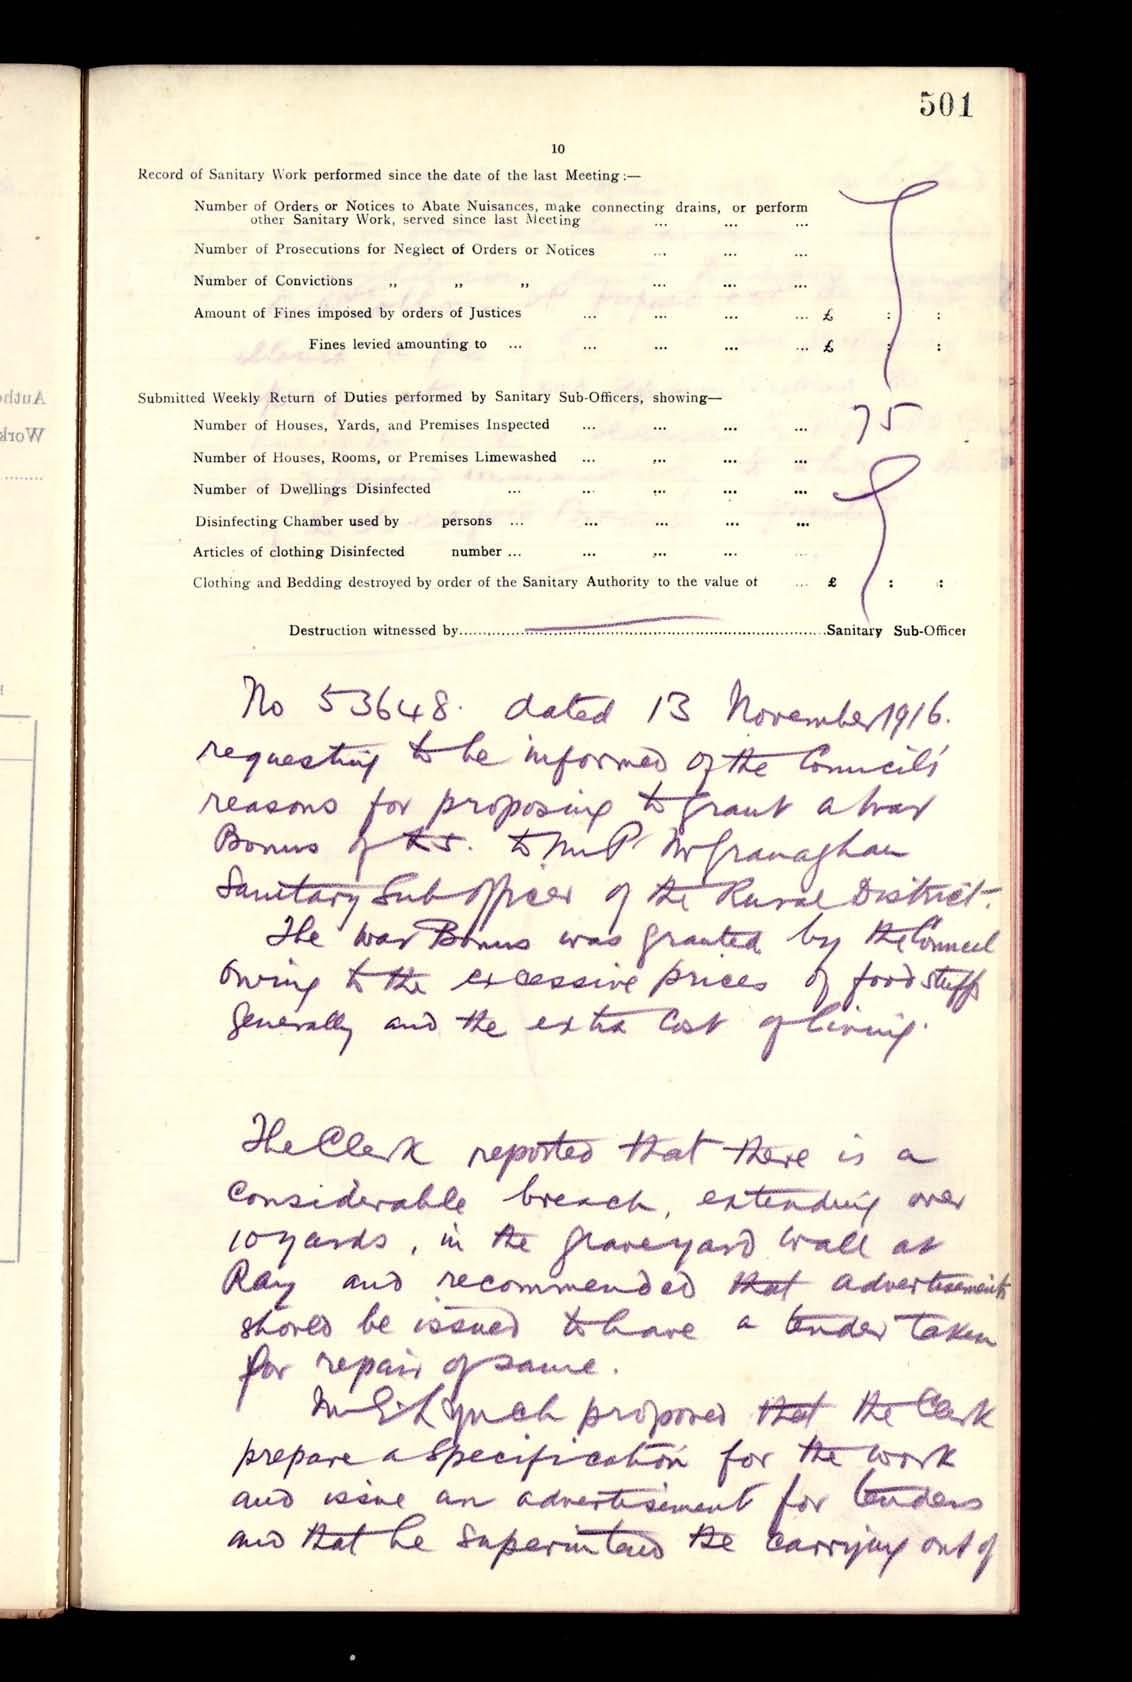 501
10
Record of Sanitary Work performed since the date of the last Meeting:—
Number of Orders or Notices to Abate Nuisances, make connecting drains, or perform
other Sanitary Work, served since last Meeting ... ... ...
Number of Prosecutions for Neglect of Orders or Notices ... ... ...
Number of Convictions „ „ „ ... ... ...
Amount of Fines imposed by orders of Justices ... ... ... ... £ : :
Fines levied amounting to ... ... ... ... ... £ : :
Submitted Weekly Return of Duties performed by Sanitary Sub-Officers, showing—
Number of Houses, Yards, and Premises Inspected ... ... ... ... 75
Number of Houses, Rooms, or Premises Limewashed ... ... ... ...
Number of Dwellings Disinfected ... ... ... ... ...
Disinfecting Chamber used by persons ... ... ... ... ...
Articles of clothing Disinfected number ... ... ... ... ...
Clothing and Bedding destroyed by order of the Sanitary Authority to the value of ... £ : :
Destruction witnessed by..............Sanitary Sub-Officer
No 53648. dated 13 November 1916.
requesting to be informed of the Council's
reasons for proposing to grant a War
Bonus of £5. to Mr P McGranaghan
Sanitary Sub officer of the Rural District.
The War Bonus was granted by the Council
owing to the excessive prices of food stuffs
generally and the extra Cost of living.
The Clerk reported that there is a
Considerable breach, extending over
10 yards, in the graveyard wall at
Ray and recommended that advertisements
should be issued to have a tender taken
for repair of same.
Mr Lynch proposed that the Clerk
prepare a Specification for the work
and issue an advertisement for tenders
and that he Superintend the carrying out of
Autho
Work